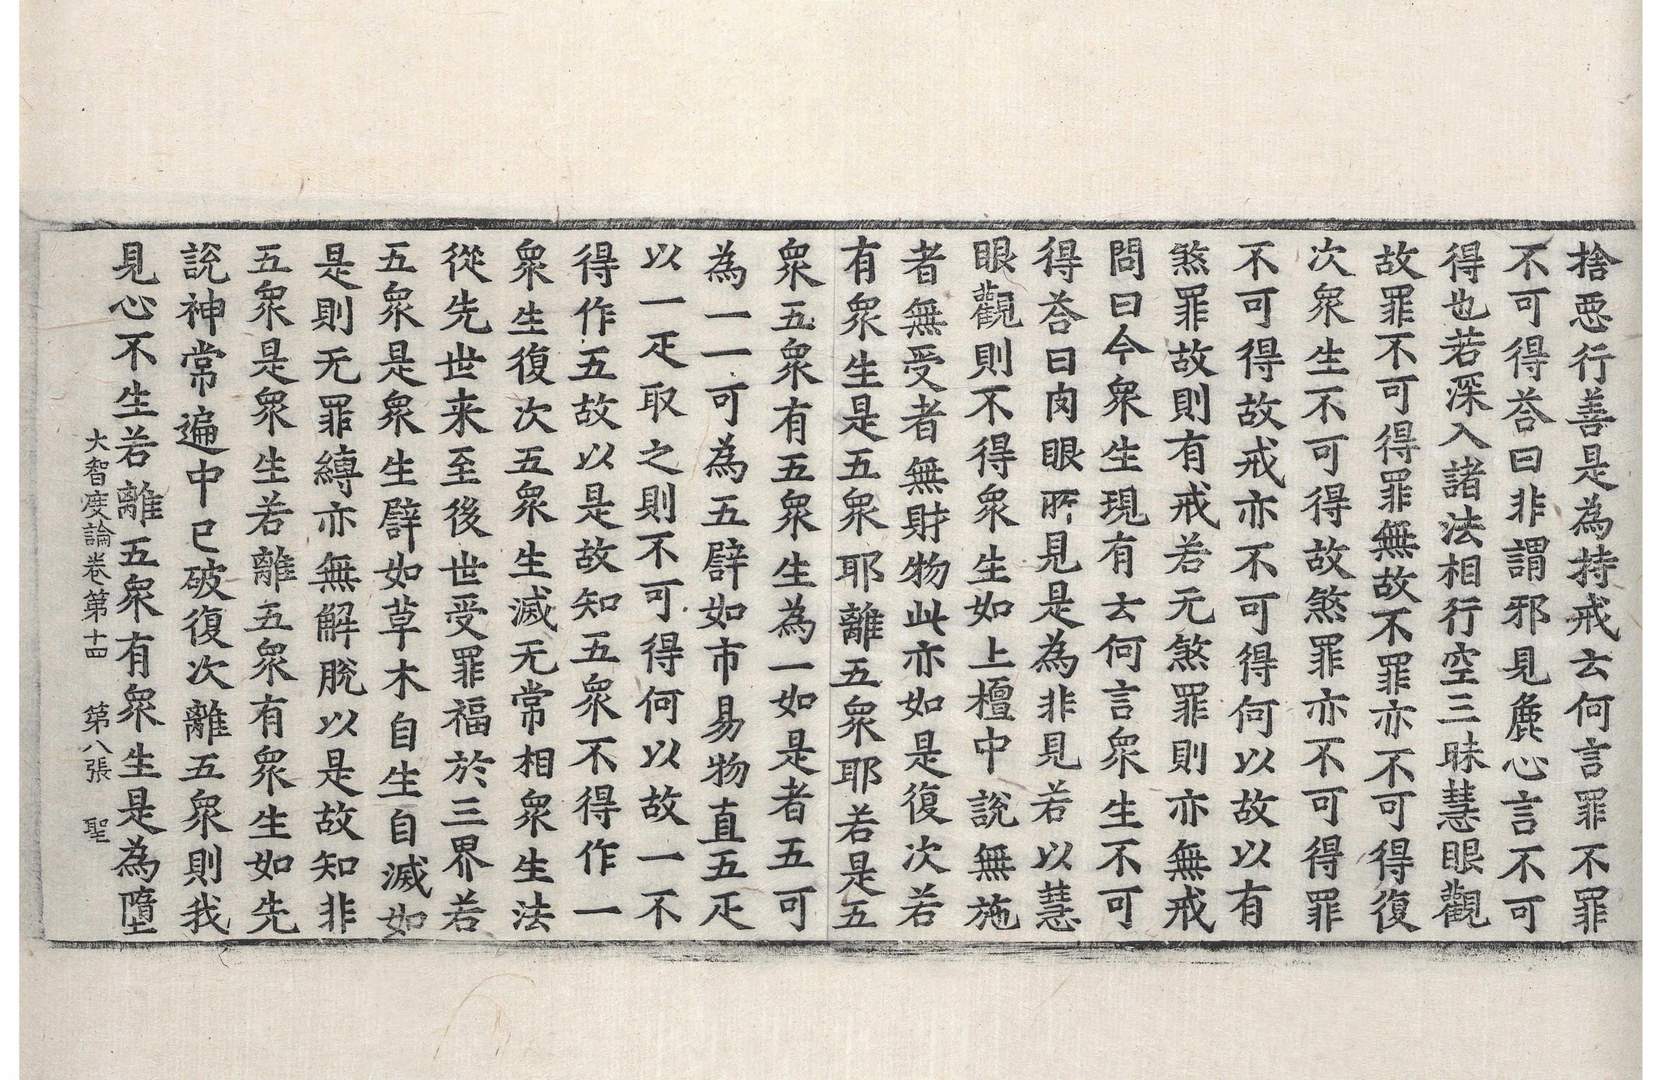 捨惡行善是為持戒云何言罪不罪
不可得荅曰非謂邪見麁心言不可
得也若深入諸法相行空三昧慧眼觀
故罪不可得罪無故不罪亦不可得復
次衆生不可得故煞罪亦不可得罪
不可得故戒亦不可得何以故以有
煞罪故則有戒若无煞罪則亦無戒
問曰今衆生現有云何言衆生不可
得荅曰肉眼所見是為非見若以慧
眼觀則不得衆生如上檀中說無施
者無受者無財物此亦如是復次若
有衆生是五衆耶離五衆耶若是五
衆五衆有五衆生為一如是者五可
為一一可為五譬如市易物直五疋
以一疋取之則不可得何以故一不
得作五故以是故知五衆不得作一
衆生復次五衆生滅无常相衆生法
從先世来至後世受罪福於三界若
五衆是衆生譬如草木自生自滅如
是則无罪縛亦無解脫以是故知非
五衆是衆生若離五衆有衆生如先
說神常遍中已破復次離五衆則我
見心不生若離五衆有衆生是為墮
大智度論卷第十四　第八張　聖